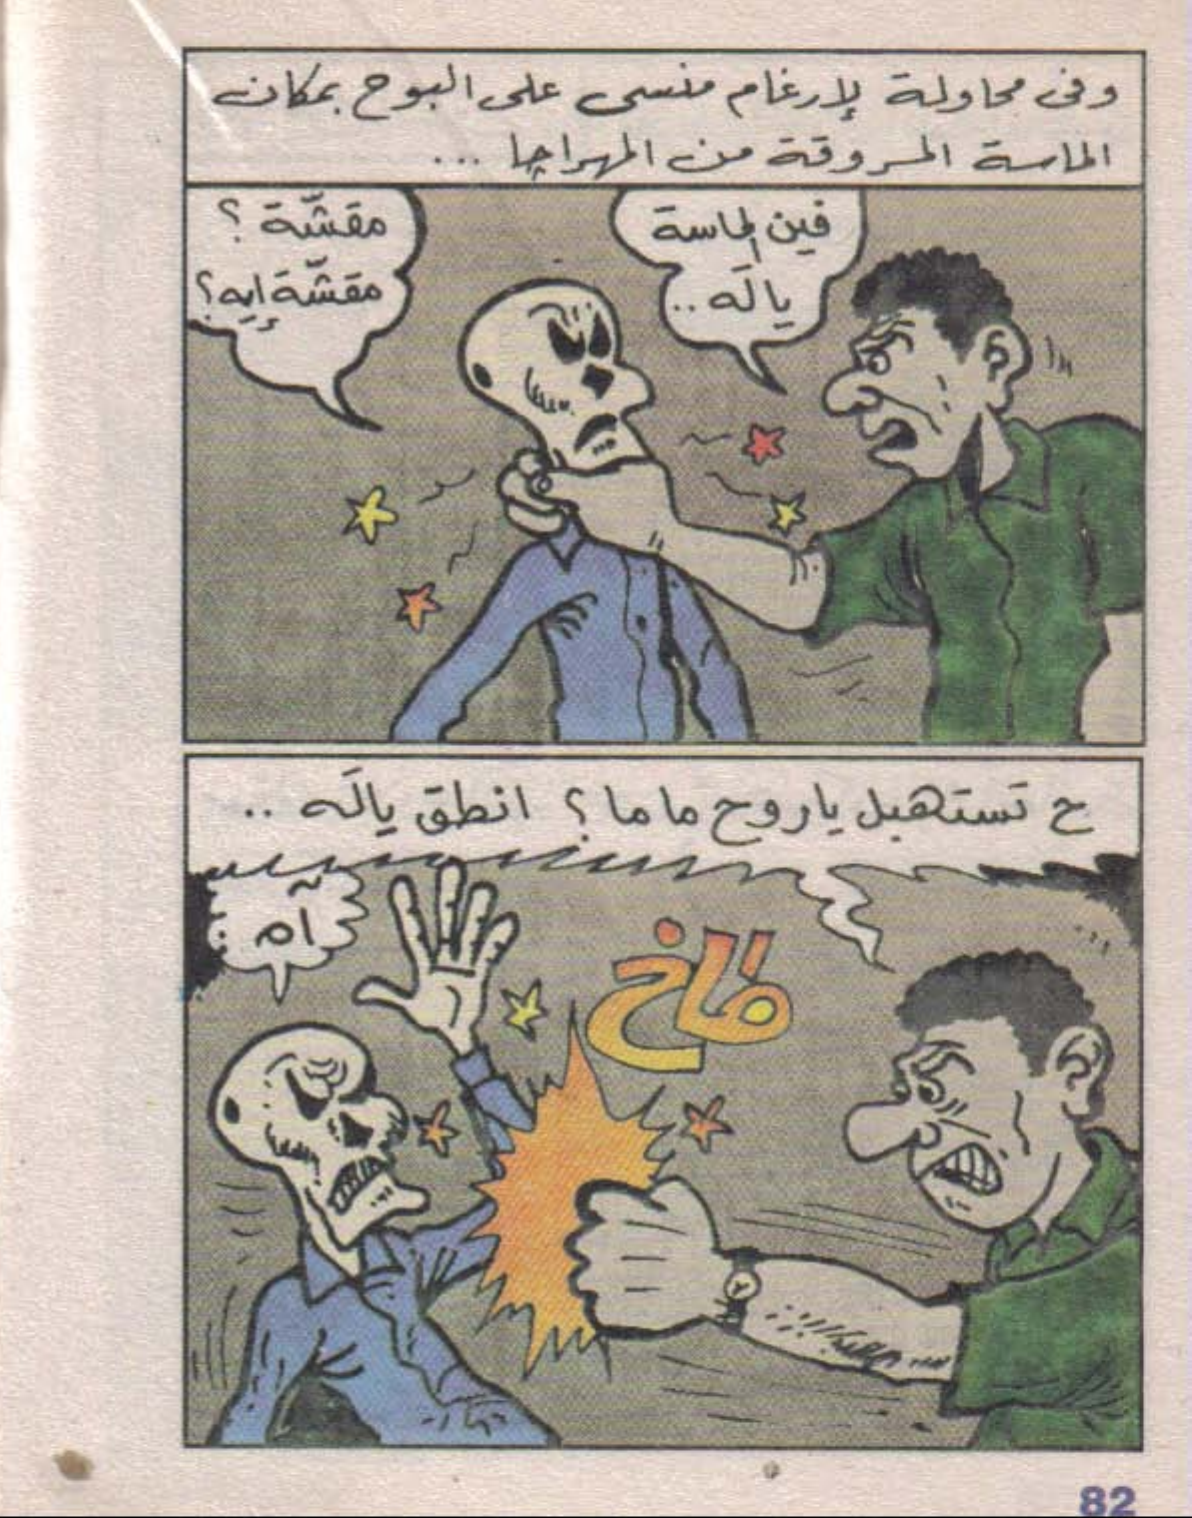 وفى محاولة لإرغام منسى على البوح بمكان
الماسة المسروقة من المهراچا ...
فين الماسة
يا لَه ..
مقشّة ؟
مقشّة إيه ؟
ح تستهبل ياروح ماما ؟ انطق يالَه ..
آه
طاخ
82